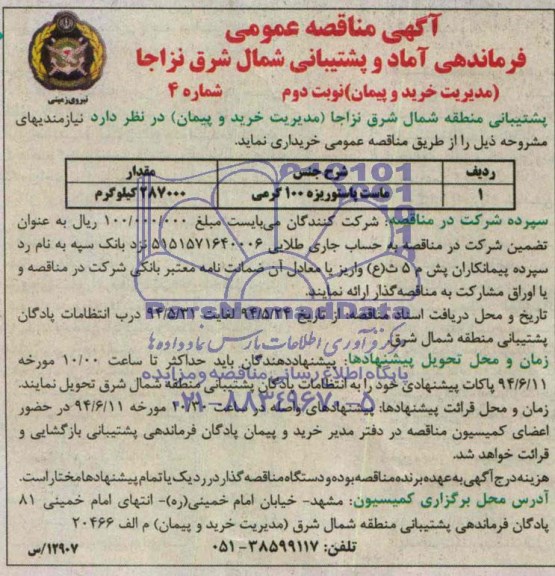 آگهی مناقصه عمومی
فرماندهی آماد و پشتیبانی شمال شرق نزاجا
(مدیریت خرید و پیمان) نوبت دوم شماره ۴
نیروی زمینی
پشتیبانی منطقه شمال شرق نزاجا (مدیریت خرید و پیمان) در نظر دارد نیازمندیهای
مشروحه ذیل را از طریق مناقصه عمومی خریداری نماید.
ردیف شرح جنس مقدار
۱ ماست پاستوریزه ۱۰۰ گرمی ۲۸۷۰۰۰ کیلوگرم
سپرده شرکت در مناقصه: شرکت کنندگان می‌بایست مبلغ ۱۰۰/۰۰۰/۰۰۰ ریال به عنوان
تضمین شرکت در مناقصه به حساب جاری طلایی ۵۱۵۱۵۷۱۶۴۰۰۰۶ نزد بانک سپه به نام رد
سپرده پیمانکاران پش م ۵ ث(ع) واریز یا معادل آن ضمانت نامه معتبر بانکی شرکت در مناقصه و
یا اوراق مشارکت به مناقصه‌گذار ارائه نمایند.
تاریخ و محل دریافت اسناد مناقصه: از تاریخ ۹۴/۵/۲۴ لغایت ۹۴/۵/۳۱ درب انتظامات پادگان
پشتیبانی منطقه شمال شرق
زمان و محل تحویل پیشنهادها: پیشنهاددهندگان باید حداکثر تا ساعت ۱۰/۰۰ مورخه
۹۴/۶/۱۱ پاکات پیشنهادی خود را به انتظامات پادگان پشتیبانی منطقه شمال شرق تحویل نمایند.
زمان و محل قرائت پیشنهادها: پیشنهادهای واصله در ساعت ۲۰/۳۰ مورخه ۹۴/۶/۱۱ در حضور
اعضای کمیسیون مناقصه در دفتر مدیر خرید و پیمان پادگان فرماندهی پشتیبانی بازگشایی و
قرائت خواهد شد.
هزینه درج آگهی به عهده برنده مناقصه بوده و دستگاه مناقصه گذار در رد یک یا تمام پیشنهادها مختار است.
آدرس محل برگزاری کمیسیون: مشهد- خیابان امام خمینی(ره)- انتهای امام خمینی ۸۱
پادگان فرماندهی پشتیبانی منطقه شمال شرق (مدیریت خرید و پیمان) م الف ۲۰۴۶۶
تلفن: ۳۸۵۹۹۱۱۷-۰۵۱
۱۲۹۰۷/س
ParsNamadData
مرکز فرآوری اطلاعات پارس نماد داده ها
پایگاه اطلاع رسانی مناقصه و مزایده
۰۲۱-۸۸۳۴۹۶۷۰-۵